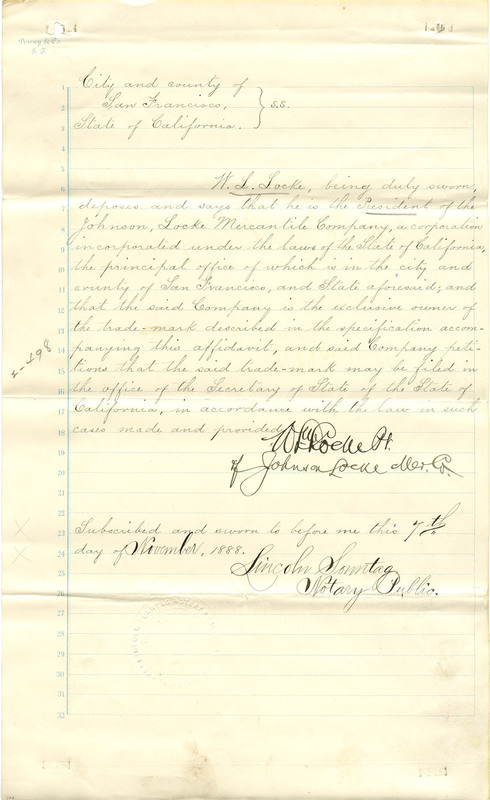 Dewey & Co
S. F.
City and county of
San Francisco, } s.s.
State of California.
W. L. Locke, being duly sworn,
deposes and says that he is the President of the
Johnson, Locke Mercantile Company, a corporation
incorporated under the laws of the State of California,
the principal office of which is in the city and
county of San Francisco, and State aforesaid; and
that the said Company is the exclusive owner of
the trade-mark described in the specification accom-
panying this affidavit, and said Company peti-
tions that the said trade-mark may be filed in
the office of the Secretary of State of the State of
California, in accordance with the law in such
cases made and provided
W L Locke Pt.
of Johnson Locke Mer. Co.
Subscribed and sworn to before me this 7th
day of November, 1888.
Lincoln Sonntag
Notary Public.
1
2
3
4
5
6
7
8
9
10
11
12
13
14
15
16
17
18
19
20
21
22
23
24
25
26
27
28
29
30
31
32